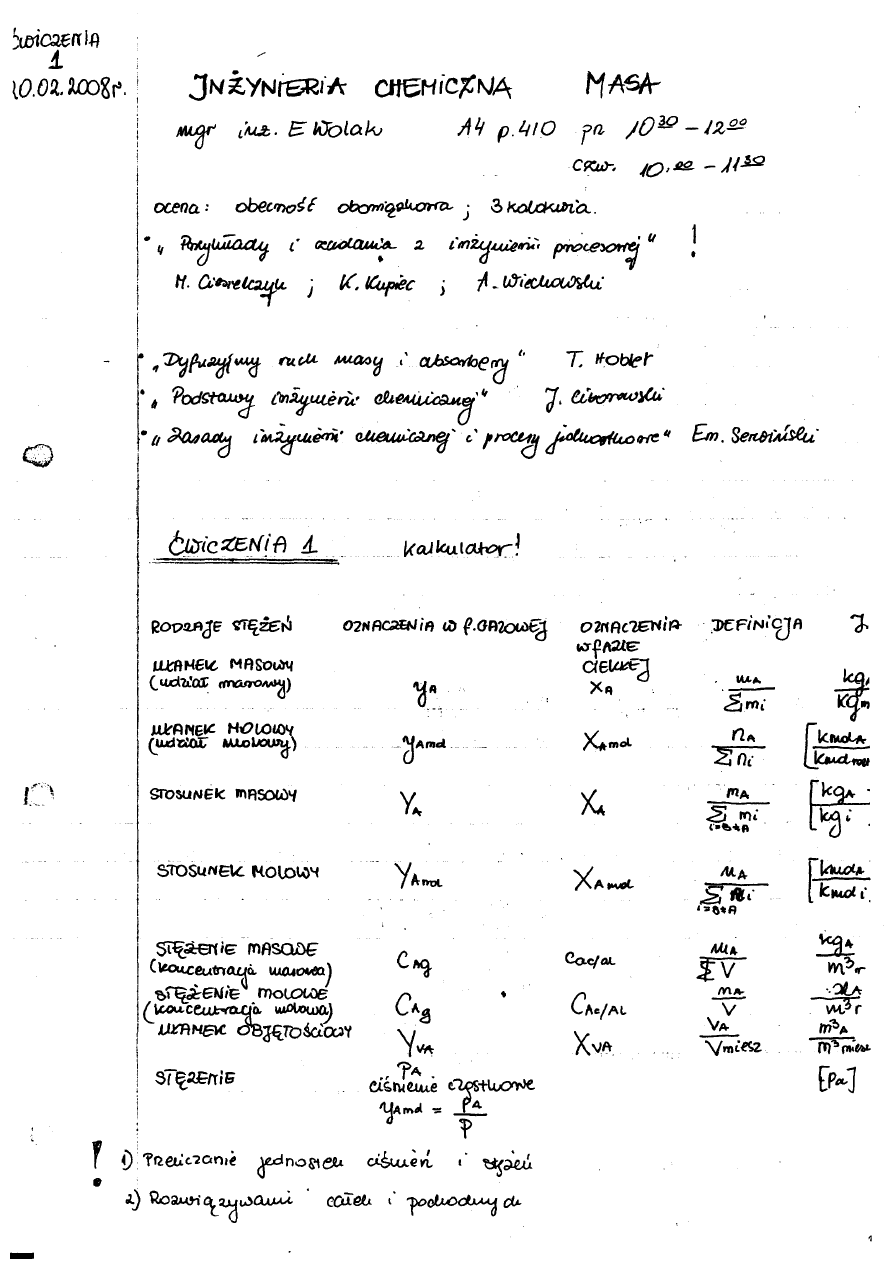 ĆWICZENIA
1
20.02.2008r.
INŻYNIERIA CHEMICZNA MASA
mgr inż. E Wolak A4 p.410 pn 10³⁰ – 12⁰⁰
czw. 10.⁰⁰ – 11³⁰
ocena: obecność obowiązkowa ; 3 kolokwia.
• „Przykłady i zadania z inżynierii procesowej" !
M. Ciesielczyk ; K. Kupiec ; A. Wiechowski
• „Dyfuzyjny ruch masy i absorbery" T. Hobler
• „Podstawy inżynierii chemicznej" J. Ciborowski
• „Zasady inżynierii chemicznej i procesy jednostkowe" Em. Serwiński
ĆWICZENIA 1 Kalkulator!
RODZAJE STĘŻEŃ OZNACZENIA W f. GAZOWEJ OZNACZENIA DEFINICJA J.
W FAZIE
CIEKŁEJ
UŁAMEK MASOWY
(udział masowy) y_A x_A m_A / Σm_i kg_A / kg_m
UŁAMEK MOLOWY
(udział molowy) y_Amol x_Amol n_A / Σn_i [kmol_A / kmol_rozt
STOSUNEK MASOWY Y_A X_A m_A / Σ_{i=B≠A} m_i [kg_A / kg i
STOSUNEK MOLOWY Y_Amol X_Amol n_A / Σ_{i=B≠A} n_i [kmol_A / kmol i
STĘŻENIE MASOWE
(koncentracja masowa) C_Ag C_Ac/Al m_A / V kg_A / m³r
STĘŻENIE MOLOWE
(koncentracja molowa) C_Ag C_Ac/Al n_A / V m³r
UŁAMEK OBJĘTOŚCIOWY Y_VA X_VA V_A / V_miesz m³_A / m³_miesz
STĘŻENIE P_A [Pa]
ciśnienie cząstkowe
y_Amol = p_A / P
! 1) Przeliczanie jednostek ciśnień i stężeń
2) Rozwiązywanie całek i pochodnych